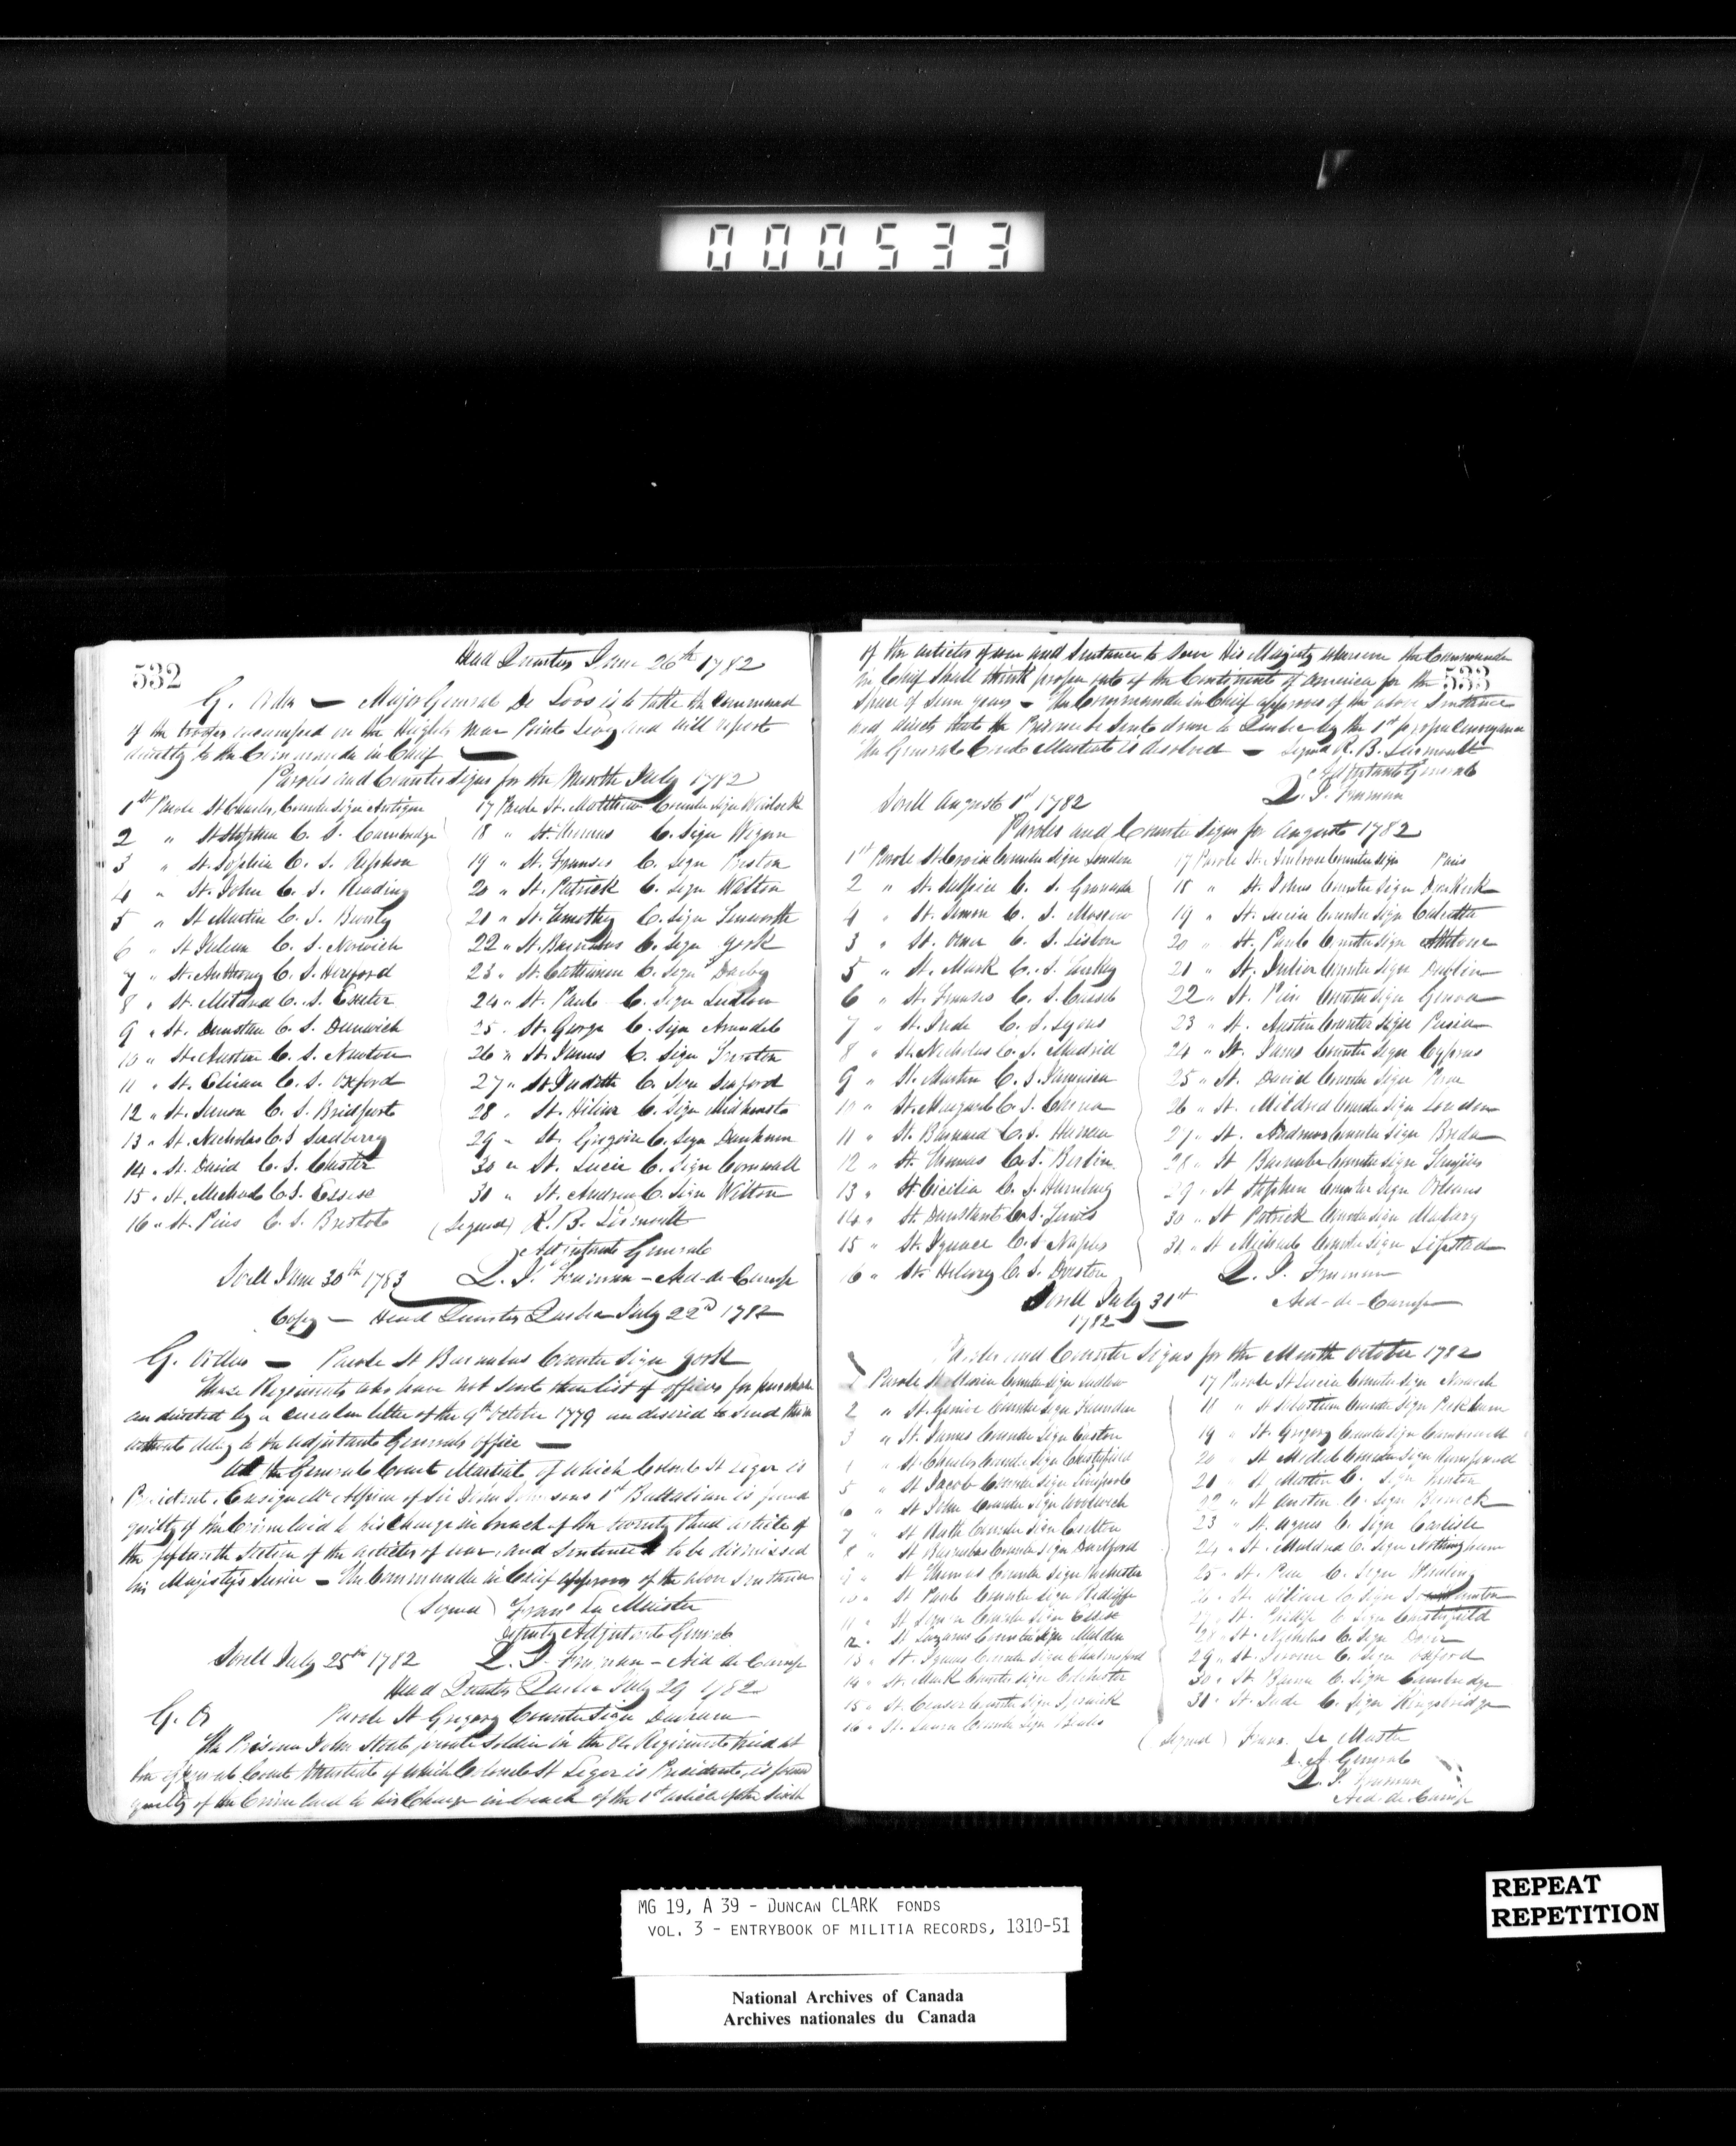 000533
532
Head Quarters June 26th 1782
G. Order — Major General De Loos is to take the command
of the troops encamped on the Heights near Point Levy and will report
directly to the Commander in Chief —
Paroles and Counter Signs for the Month July 1782
1st Parole St Charles, Counter Sign Antigua
2 " St Stephen C. S. Cambridge
3 " St. Sophia C. S.
4 " St. John C. S. Reading
5 " St Martin C. S.
6 " St Julian C. S. Norwich
7 " St. Anthony C. S. Hereford
8 " St. Mildred C. S. Exeter
9 " St. Dunstan C. S. Dunwich
10 " St. Austin C. S. Newton
11 " St. C. S. Oxford
12 " St. Simon C. S. Bridport
13 " St. Nicholas C. S Sudberry
14 " St. David C. S. Chester
15 " St. Michael C. S. Essex
16 " St. Pius C. S. Bristol
17 Parole St. Matthew Counter Sign
18 " St. Thomas C. Sign Wigan
19 " St. Franses C. Sign Preston
20 " St. Patrick C. Sign Walton
21 " St. Timothy C. Sign Tamworth
22 " St. Barnabas C. Sign York
23 " St. Catherine C. Sign Darby
24 " St. Paul C. Sign Ludlow
25 " St. George C. Sign Arundel
26 " St. James C. Sign
27 " St Judith C. Sign Seaford
28 " St. C. Sign Midhurst
29 " St. Gregoire C. Sign
30 " St. Lucie C. Sign Cornwall
31 " St. Andrew C. Sign Wilton
(Signed) R. B. Lernoult
Adjutant General
Sorell June 30th 1783 L. J. Freeman — Aid-de-Camp
Copy — Head Quarters Quebec July 22nd 1782
G. Orders — Parole St Barnabas Counter Sign York
Those Regiments who have not sent their list of officers for purchase
as directed by a circular letter of the 9th October 1779 are desired to send them
without delay to the Adjutant Generals office —
At the General Court Martial of which Colonel St Leger is
President, Ensign Mc Alpine of Sir John Johnsons 1st Battalion is found
guilty of the Crime laid to his Charge in breach of the twenty third article of
the fifteenth Section of the articles of war, and sentenced to be dismissed
his Majesty's Service — The Commander in Chief approves of the above Sentence
(Signed) Frans Le Maister
Deputy Adjutant General
Sorell July 25th 1782 L. J. Freeman — Aid de Camp
Head Quarters Quebec July 29 1782
G. O Parole St Gregory Counter Sign Durham
The Prisoner John Steel private Soldier in the 8th Regiment tried at
the General Court Martial of which Colonel St Leger is President, is found
guilty of the Crime laid to his Charge in breach of the 1st article of the sixth
533
of the articles of war and Sentence to serve His Majesty wherever the Commander
in Chief shall think proper out of the Continent of America for the
Space of Seven years — The Commander in Chief approves of the above Sentence
and directs that the Prisoner be sent down to Quebec by the 1st proper Conveyance
The General Court Martial is disolved — Signed R. B. Lernoult
Adjutant General
Sorell August 1st 1782 L. J. Freeman
Paroles and Counter Signs for August 1782
1st Parole St. Croix Counter Sign London
2 " St. Sulpice C. S. Grenada
4 " St. Simon C. S. Moscow
3 " St. Omer C. S. Lisbon
5 " St. Mark C. S. Turkey
6 " St. Franses C. S. Cassel
7 " St. Jude C. S. Lyons
8 " St. Nicholas C. S. Madrid
9 " St. Martin C. S. Jamaica
10 " St. Margaret C. S. China
11 " St. Barnard C. S.
12 " St. Thomas C. S. Berlin
13 " St Cicilia C. S. Hamburg
14 " St. Dunstant C. S. Tunis
15 " St. Ignace C. S Naples
16 " St. Hilary C. S.
17 Parole St. Ambrose Counter Sign Paris
18 " St. Johns Counter Sign Dunkirk
19 " St. Lucia Counter Sign Calcutta
20 " St. Paul Counter Sign Athlone
21 " St. Counter Sign Dublin
22 " St. Pier Counter Sign Genoa
23 " St. Austin Counter Sign Persia
24 " St. James Counter Sign Cyprus
25 " St. David Counter Sign
26 " St. Mildred Counter Sign London
27 " St. Andrews Counter Sign Breda
28 " St Barnaba Counter Sign Tangiers
29 " St Stephen Counter Sign Orleans
30 " St Patrick Counter Sign
31 " St Michael Counter Sign Lipstad
L. J. Freeman
Sorell July 31st Aid-de-Camp
1782 —
Paroles and Counter Signs for the Month October 1782
1 Parole St. Maria Counter Sign Ludlow
2 " St. Counter Sign
3 " St. James Counter Sign
" St. Charles Counter Sign Chesterfield
5 " St Jacob Counter Sign Liverpool
6 " St John Counter Sign Woolwich
7 " St Ruth Counter Sign Carlton
8 " St Barnabas Counter Sign Dartford
" St Thomas Counter Sign Rochester
10 " St Paul Counter Sign
11 " St Simon Counter Sign Essex
12 " St Lazarus Counter Sign Maldon
13 " St. Ignace Counter Sign Chelmsford
14 " St. Mark Counter Sign Colchester
15 " St. Ceaser Counter Sign Ipswich
16 " St. Laura Counter Sign
17 Parole St Lucia Counter Sign Norwich
18 " St Sebastian Counter Sign Peckham
19 " St. Gregory Counter Sign
20 " St Counter Sign
21 " St Martin C. Sign
22 " St Austin C. Sign Berwick
23 " St. Agnes C. Sign Carlisle
24 " St. Mildred C. Sign Nottingham
25 " St. C. Sign
26 " St. C. Sign
27 " St. C. Sign Chesterfield
28 " St. Nicholas C. Sign Dover
29 " St. Jerome C. Sign Oxford
30 " St. C. Sign Cambridge
31 " St. Jude C. Sign Kingsbridge
(Signed) Frans. Le Master
D. A. General
L. J. Freeman
Aid-de-Camp
MG 19, A 39 - DUNCAN CLARK FONDS
VOL. 3 - ENTRYBOOK OF MILITIA RECORDS, 1810-51
National Archives of Canada
Archives nationales du Canada
REPEAT
REPETITION